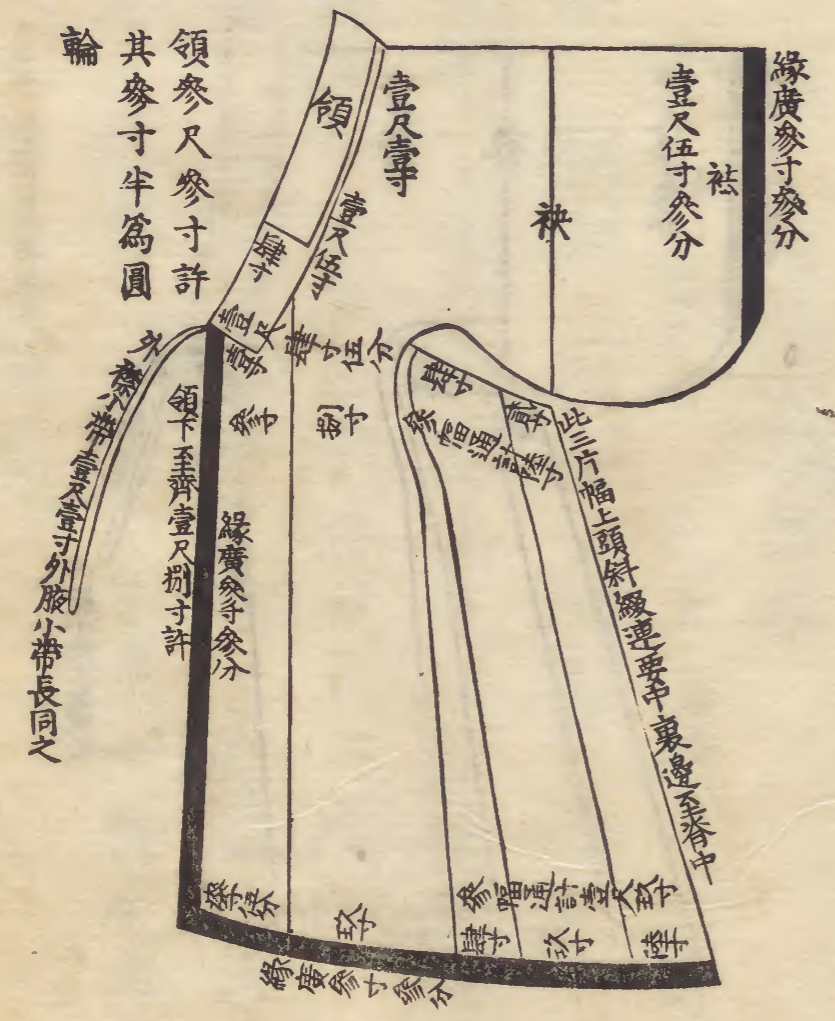 緣廣參寸參分
袪
壹尺伍寸參分
袂
壹尺壹寸
壹尺伍寸
領
肆寸
領參尺參寸許
其參寸半爲圓
輪
壹尺肆寸伍分
壹寸
參寸
捌寸
肆寸
貳寸
參幅通計陸寸
此三片幅上頭斜綴連要中裏邊至脊中
外襟小帶壹尺壹寸外腋小帶長同之
領下至齊壹尺捌寸許
緣廣參寸參分
參寸伍分
玖寸
參幅通計壹尺玖寸
肆寸
玖寸
陸寸
緣廣參寸參分